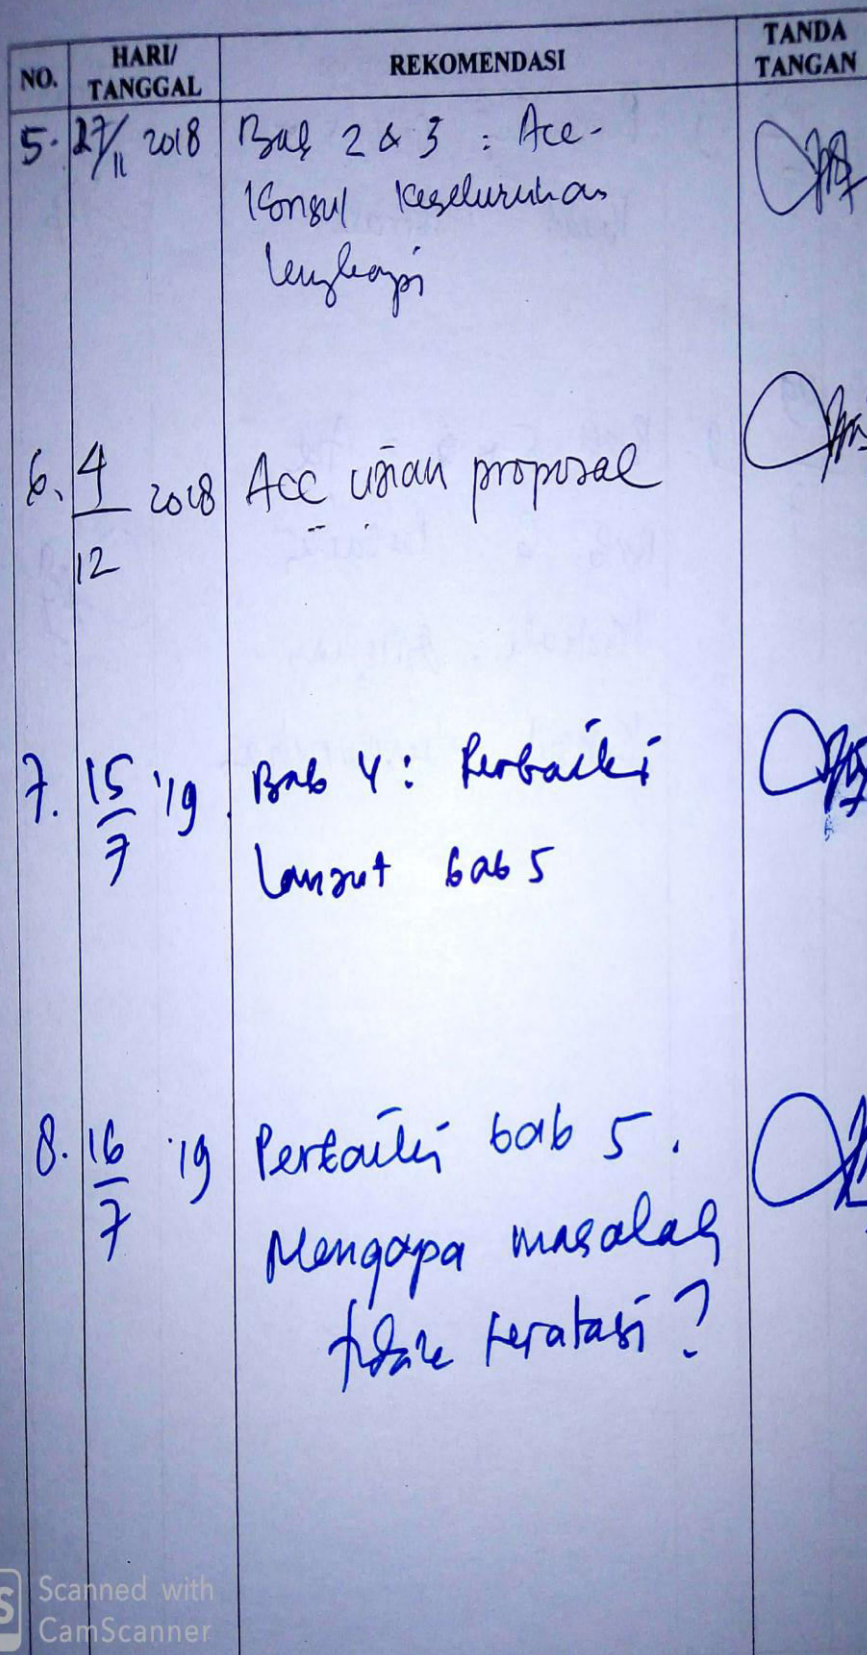 NO. HARI/ TANGGAL REKOMENDASI TANDA TANGAN
5. 27/11 2018 Bab 2 & 3 : Acc.
Konsul keseluruhan
lengkapi
6. 4/12 2018 Acc ujian proposal
7. 15/7 '19 Bab 4 : Perbaiki
Lanjut bab 5
8. 16/7 '19 Perbaiki bab 5.
Mengapa masalah
tidak teratasi?
Scanned with
CamScanner